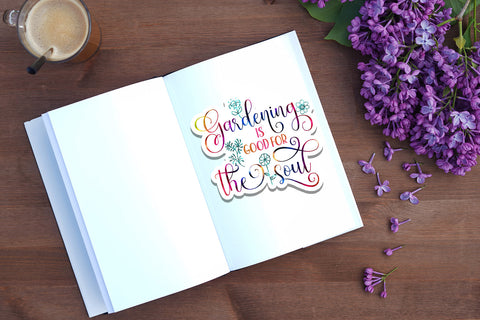 Gardening
IS
GOOD FOR
the soul